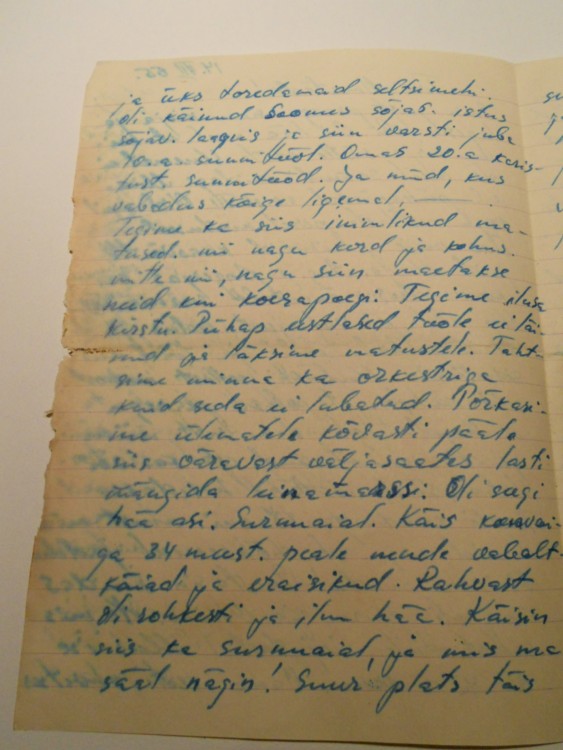 ja üks toredamaid seltsimehi.
Oli käinud Soomus sõjas. istus
sõjav. laagris ja siin varsti juba
10.a sunnitööl. Omas 20.a karis-
tust. sunnitööd. Ja nüüd, kus
vabadus kõige ligemal,
Tegime ka siis inimlikud ma-
tused. nii nagu kord ja kohus.
mitte nii, nagu siin maetakse
neid kui koerapoegi. Tegime ilusa
kirstu. Pühap eestlased tööle ei läi-
nud ja läksime matustele. Taht-
sime minna ka orkestriga
kuid seda ei lubatud. Põrkasi-
me ülematele kõvasti pääle
siis väravast väljasaates lasti
mängida leinamarssi. Oli seegi
hää asi. Surnuaial. Käis
ga 34 meest. peale nende vabalt-
käiad ja eraisikud. Rahvast
oli rohkesti ja ilm hää. Käisin
siis ka surnuaial, ja mis ma
sääl nägin! Suur plats täis